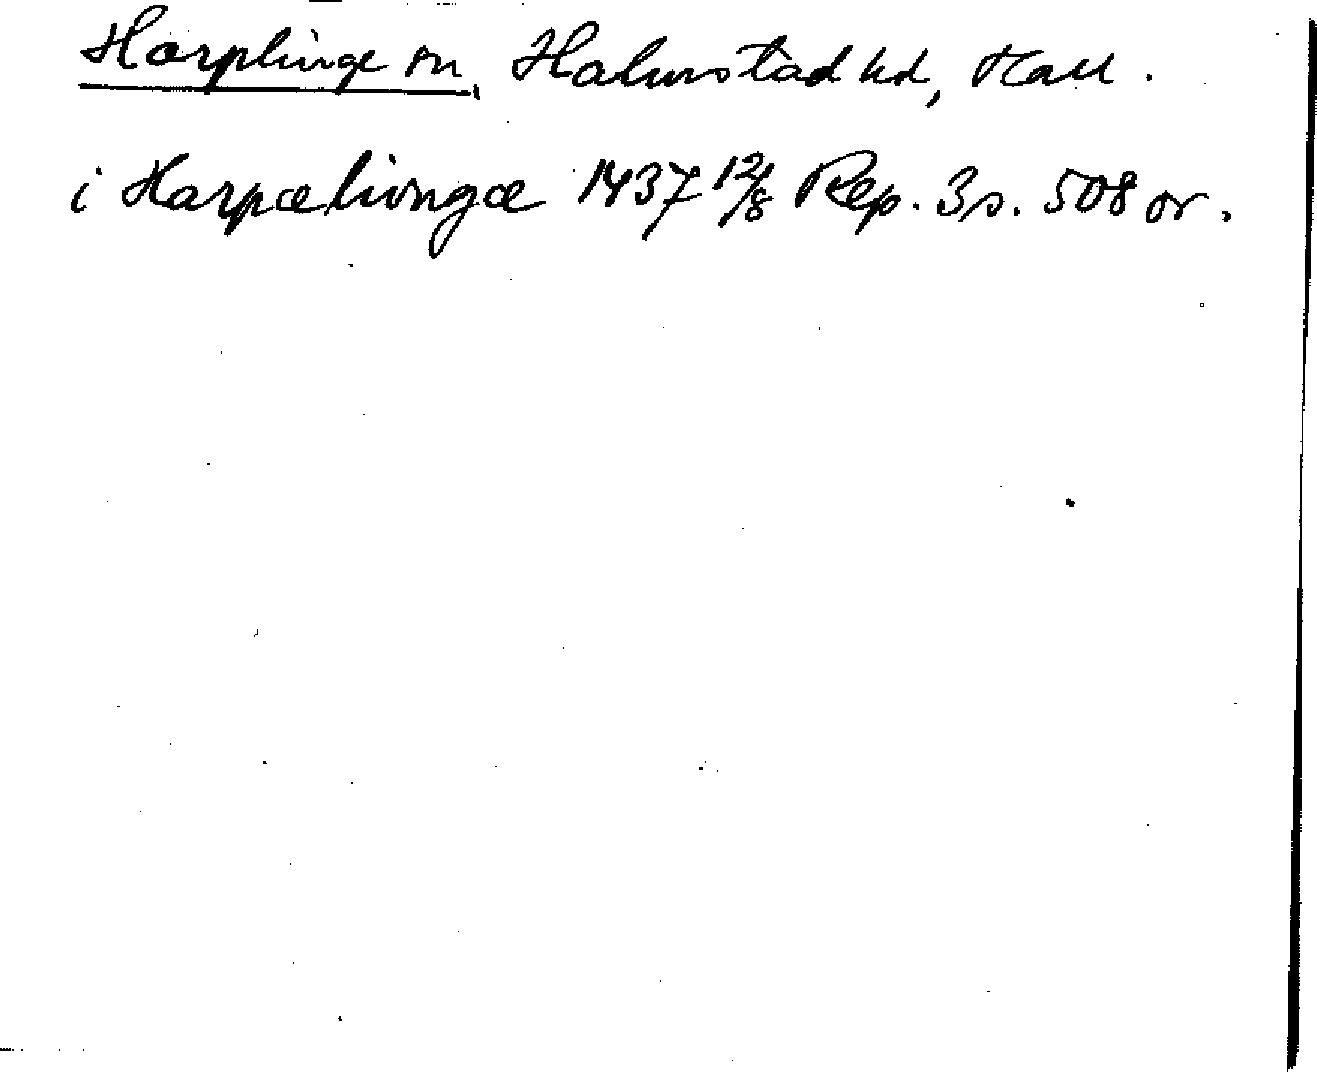 Harplinge sn, Halmstad hd, Hall.
i Harpælivngæ 1437 12/8 Rep. 3 s. 508 or.